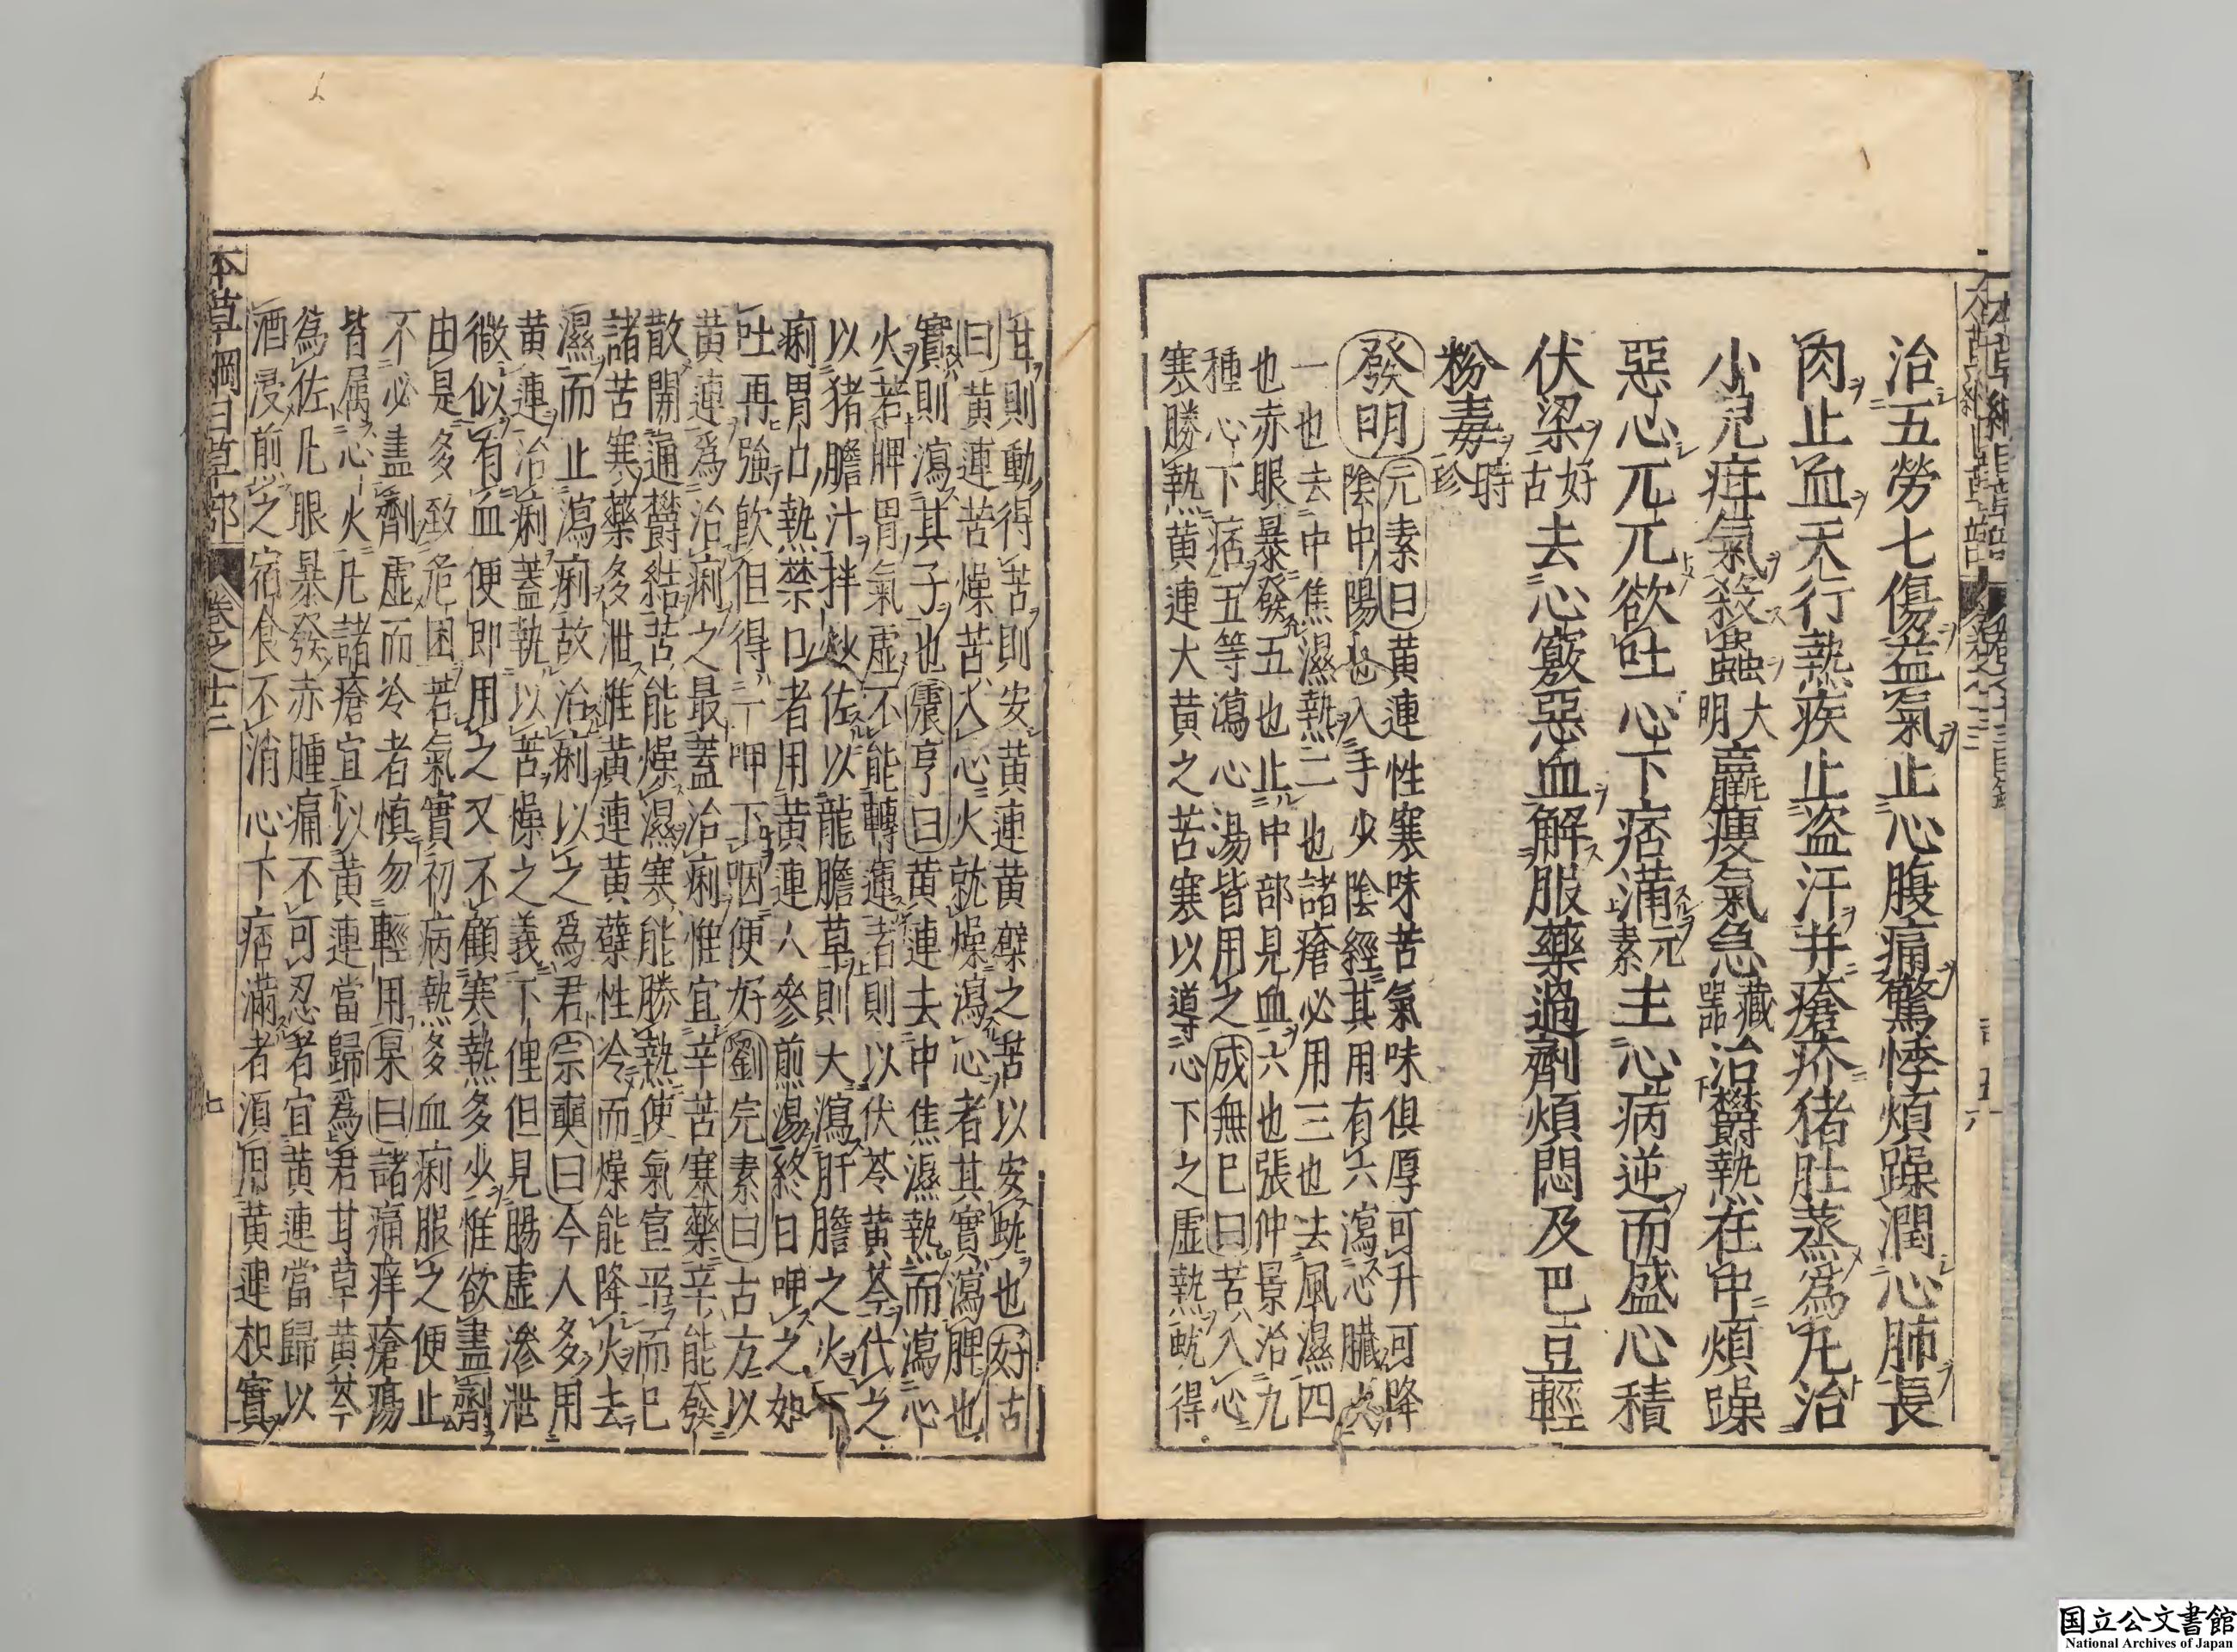 治五勞七傷益氣止心腹痛驚悸煩躁潤心肺長
肉止血天行熱疾止盜汗并瘡疥猪肚蒸為丸治
小兒疳氣殺蟲大明羸瘦氣急藏器治欝熱在中煩躁
惡心兀兀欲吐心下痞滿元素主心病逆而盛心積
伏梁好古去心竅惡血解服藥過劑煩悶及巴豆輕
粉毒時珍
發明元素曰黃連性寒味苦氣味俱厚可升可降
陰中陽也入手少陰經其用有六瀉心臟火
一也去中焦濕熱二也諸瘡必用三也去風濕四
也赤眼暴發五也止中部見血六也張仲景治九
種心下痞五等瀉心湯皆用之成無已曰苦入心
寒勝熱黃連大黃之苦寒以導心下之虛熱蚘得
甘則動得苦則安黃連黃蘗之苦以安蚘也好古
曰黃連苦燥苦入心火就燥瀉心者其實瀉脾也
實則瀉其子也震亨曰黃連去中焦濕熱而瀉心
火若脾胃氣虛不能轉運者則以伏苓黃芩代之
以猪膽汁拌炒佐以龍膽草則大瀉肝膽之火下
痢胃口熱禁口者用黃連人參煎湯終日呷之如
吐再強飲但得一呷下咽便好劉完素曰古方以
黃連為治痢之最蓋治痢惟宜辛苦寒藥辛能發
散開通欝結苦能燥濕寒能勝熱使氣宣平而已
諸苦寒藥多泄惟黃連黃蘗性冷而燥能降火去
濕而止瀉痢故治痢以之為君宗奭曰今人多用
黃連治痢蓋執以苦燥之義下俚但見腸虛滲泄
微似有血便即用之又不顧寒熱多少惟欲盡劑
由是多致危困若氣實初病熱多血痢服之便止
不必盡劑虛而冷者慎勿輕用杲曰諸痛痒瘡瘍
皆屬心火凡諸瘡宜以黃連當歸為君甘草黃芩
為佐凡眼暴發赤腫痛不可忍者宜黃連當歸以
酒浸煎之宿食不消心下痞滿者須用黃連枳實
本草綱目草部 卷之十三 七
国立公文書館
National Archives of Japan